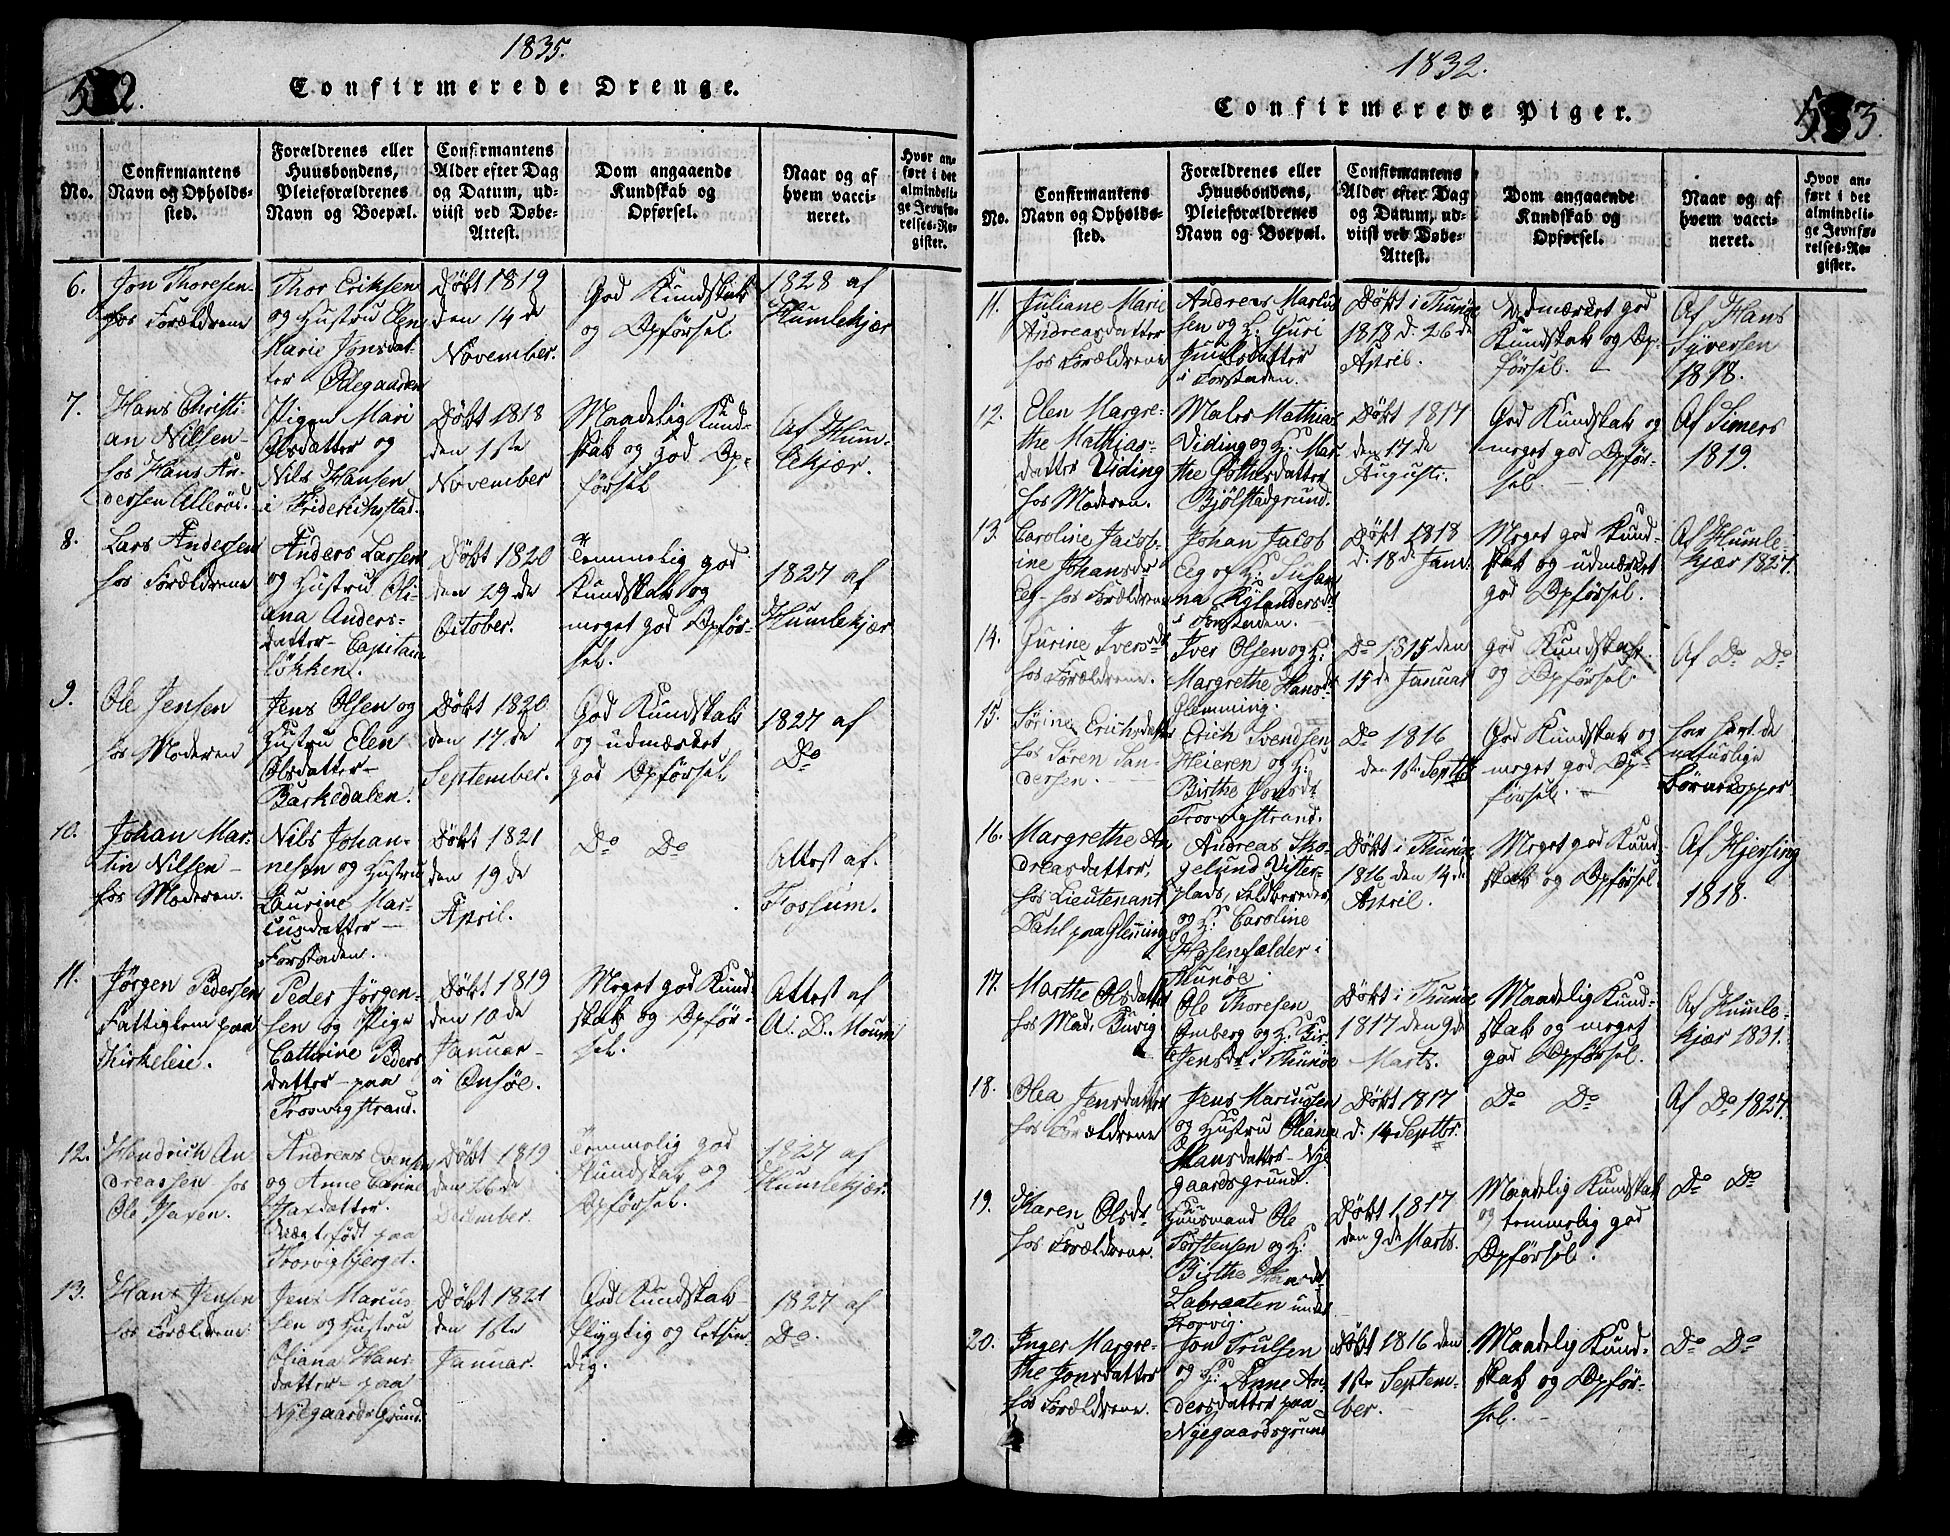 1835.
532.
Confirmerede Drenge.
No.
Confirmantens
Navn og Opholds-
sted.
Forældrenes eller
Huusbondens,
Pleieforældrenes
Navn og Boepæl.
Confirmantens
Alder efter Dag
og Datum, ud-
viist ved Døbe-
Attest.
Dom angaaende
Kundskab og
Opførsel.
Naar og af
hvem vacci-
neret.
Hvor an-
ført i det
almindeli-
ge Jevnfø-
relses-Re-
gister.
6.
Jon Thoresen
hos Forældrene
Thor Eriksen
og Hustru Elen
Marie Jonsdat-
ter Ødegaarden
Døbt 1819
den 14 de
November.
God Kundskab
og Opførsel.
1828 af
Humlekjær
7.
Hans Christi-
an Nilsen -
hos Hans An-
dersen Allerød.
Pigen Mari
Olsdatter og
Nils Hansen
i Friderichstad.
Døbt 1818
den 1ste
November
Maadelig Kund-
skab og god Op-
førsel
Af Hum-
lekjær.
8.
Lars Andersen
hos Forældrene
Anders Larsen
og Hustru Oli-
ana Anders-
datter - Capitain
løkken.
Døbt 1820
den 29 de
October.
Temmelig god
Kundskab og
meget god Opfør-
sel.
1827 af
Humlekjær
9.
Ole Jensen
hos Moderen
Jens Olsen og
Hustru Elen
Olsdatter -
Barkedalen.
Døbt 1820
den 17. de
September.
God Kundskab
og udmærket
god Opførsel.
1827 af
Do
10.
Johan Mar-
tin Nilsen -
hos Moderen.
Nils Johan-
nesen og Hustru
Laurine Mar-
cusdatter -
Forstaden.
Døbt 1821
den 19 de
April.
Do Do
Attest af.
Fossum.
11.
Jørgen Pedersen
Fattiglem paa
Kirkeleie.
Peder Jørgen-
sen og Pige
Cathrine Peders
datter - paa
Trosvigstrand.
Døbt 1819
den 10 de
Januar -
i Onsøe.
Meget god Kund
skab og Opfør-
sel.
Attest af
A. D. Moum
12.
Hendrich An-
dreassen - hos
Ole Isaxen.
Andreas Evensen
og Anne Carine
Isaxdatter.
Uægt. født paa
Trosvigbjerget.
Døbt 1819
den 26 de
December.
Temmelig god
Kundskab og
Opførsel.
1827 af
Humlekjær.
13.
Hans Jensen
hos Forældrene
Jens Marius
sen og Hustru
Oliana Hans-
datter - paa
Nyegaards Grund.
Døbt 1821
den 1ste
Januar.
God Kundskab
flygtig og letsin
dig.
1827 af
Do.
1832.
533.
Confirmerede Piger.
No.
Confirmantens
Navn og Opholds-
sted.
Forældrenes eller
Huusbondens,
Pleieforældrenes
Navn og Boepæl.
Confirmantens
Alder efter Dag
og Datum, ud-
viist ved Døbe-
Attest.
Dom angaaende
Kundskab og
Opførsel.
Naar og af
hvem vacci-
neret.
Hvor an-
ført i det
almindeli-
ge Jevnfø-
relses-Re-
gister.
11.
Juliane Marie
Andreasdatter
hos Forældrene
Andreas Marius
sen og H: Guri
Juulsdatter
i Forstaden.
Døbt i Thunøe
1818 d. 26 de
April.
Udmærket god
Kundskab og Op-
førsel. -
Af Hans
Syversen
1818.
12.
Elen Margre-
the Mathias-
datter Viding
hos Moderen.
Maler Mathias
Viding og H: Mar-
the
Bjølstadgrund.
Døbt 1817
den 17 de
Augusti.
God Kundskab og
meget god Opfør-
sel. -
Af Simers
1819.
13.
Caroline Jacob-
ine Johansdr
Eeg - hos Forældrene
Johan Jacob
Eeg og H: Susan
na Rylandersdr
i Forstaden.
Døbt 1818
d. 18 de Janr.
Meget god Kund-
skab og udmærket
god Opførsel.
Af Humle-
kjær 1827.
14.
Gurine Iversdr
hos Forældrene.
Iver Olsen og H:
Margrethe Hansdr
Glemming.
Do 1815 den
15 de Januar
god Kundskab
og Opførsel.
Af Do Do
15.
Sørine Erichsdatter
hos Søren San-
dersen.
Erich Svendsen
Heieren og H:
Birthe
Trosvigstrand.
Do 1816
den 1ste Septbr
God Kundskab og
meget god Op-
førsel. -
har havt de
naturlige
Børnekopper
16.
Margrethe An
dreasdatter,
hos Lieutenant
Dahl paa Glemming
Andreas Sko-
gelund
og H: Caroline
i
Thunøe.
Døbt i Thunøe
1816 den 14 de
April.
Meget god Kund
skab og Opførsel
Af Hjersing
1818.
17.
Marthe Olsdatter
hos Mad. Buvig
Ole Thoresen
Amberg og H: Bir-
Jensdr i Thunøe
Døbt i Thunøe
1817 den 9 de
Marts.
Maadelig Kund-
skab og meget
god Opførsel.
Af Humle-
kjær 1831.
18.
Olea Jensdatter
hos Forældrene
Jens Mariussen
og Hustru Oliana
Hansdatter - Nye
gaardsgrund.
Døbt 1817
d. 14 Septbr.
Do Do
Af Do 1827.
19.
Karen Olsdr
hos Forældrene.
Huusmand Ole
Torstensen og H:
Birthe Hansdr
Labraaten under
Trosvig.
Døbt 1817
den 9 de Marts.
Maadelig Kundskab
og temmelig god
Opførsel.
Do Do
20.
Inger Margre-
the Jonsdatter
hos Forældrene.
Jon Trulsen
og H: Anne An-
dersdatter paa
Nyegaardsgrund
Døbt 1816 den
1ste Septem-
ber.
Maadelig Kund-
skab og Opfør-
sel. -
Do Do